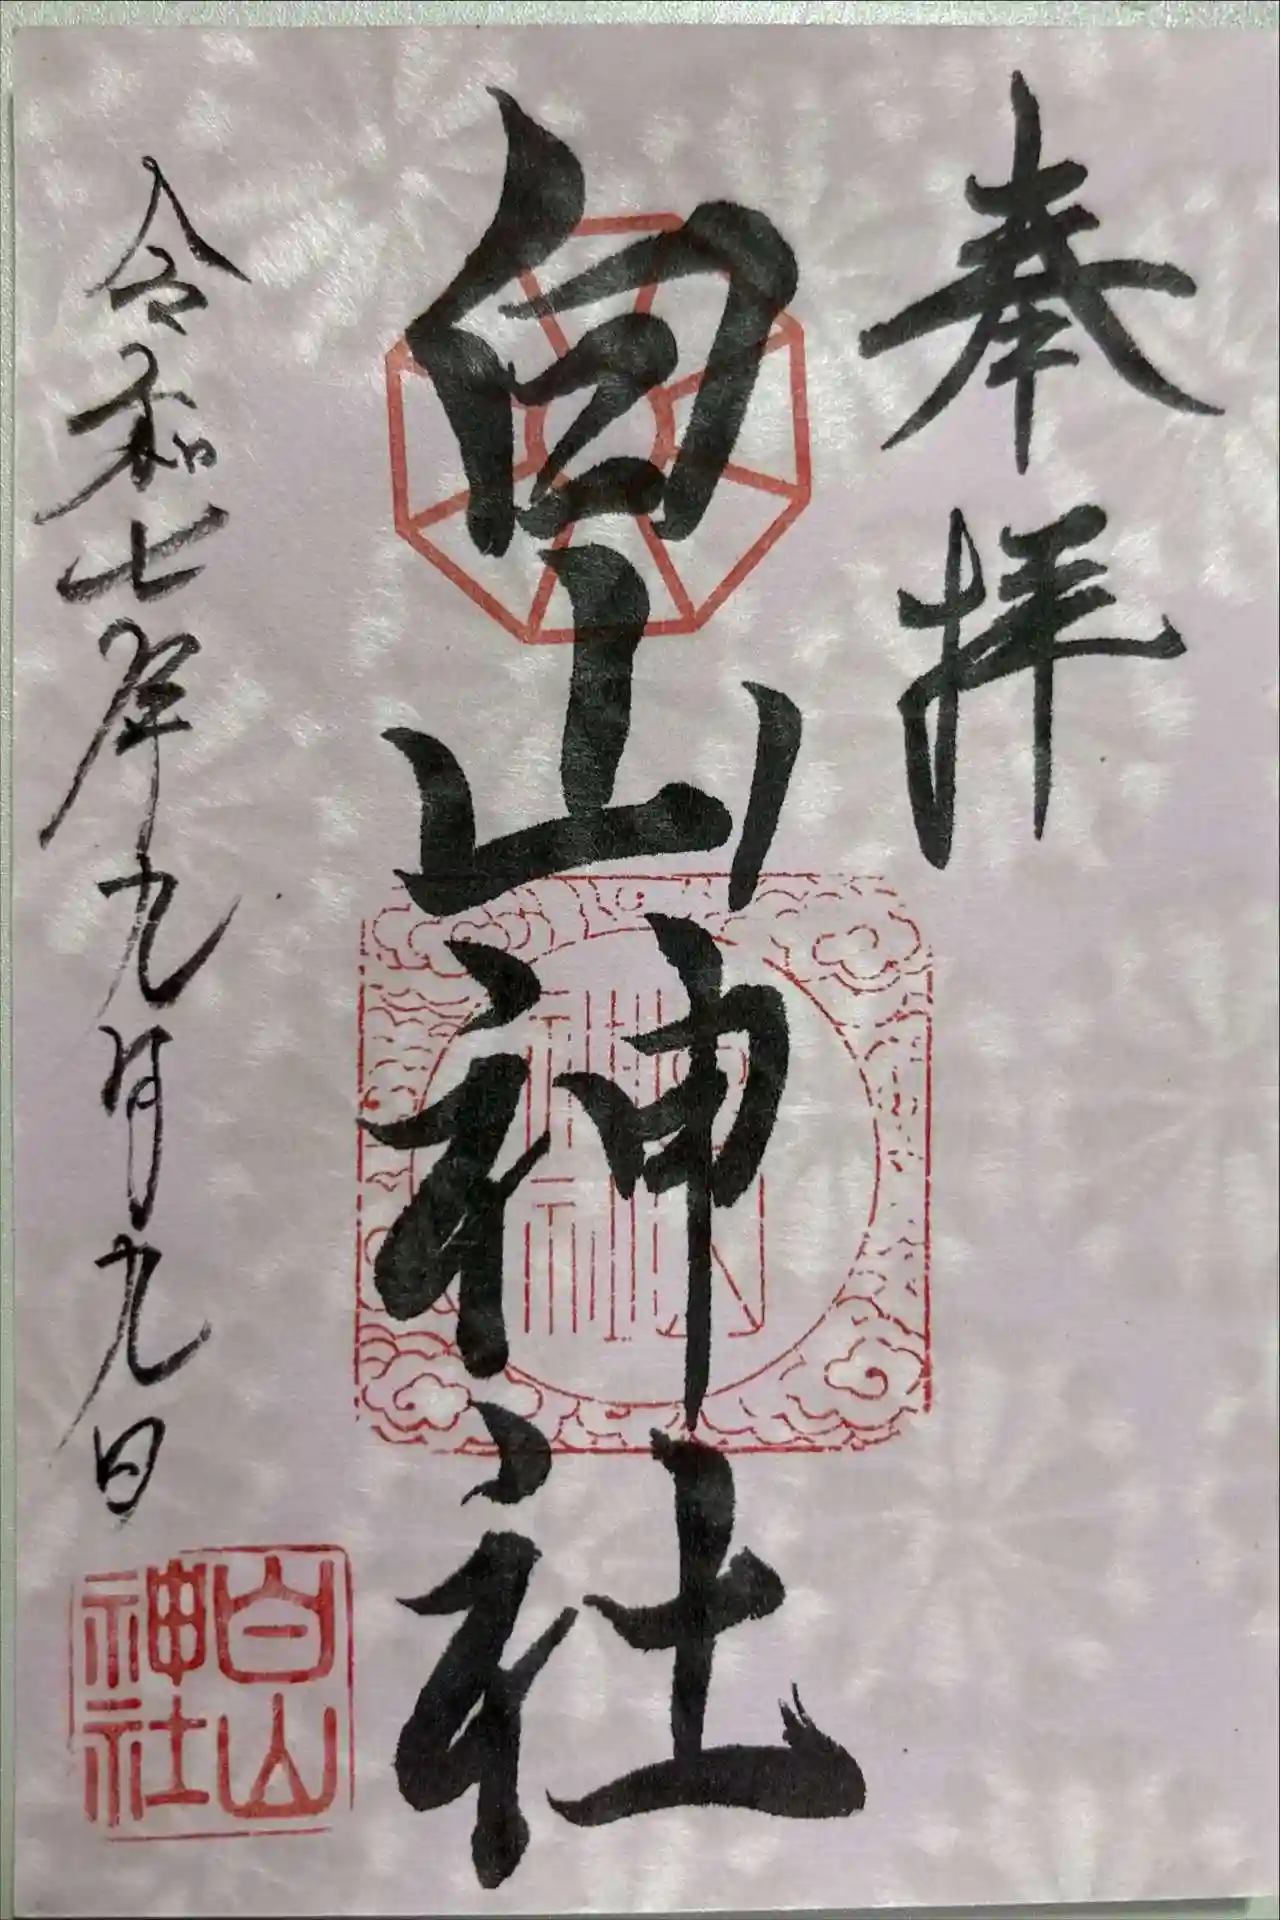 奉拝
白山神社
令和七年九月九日
白山
神社